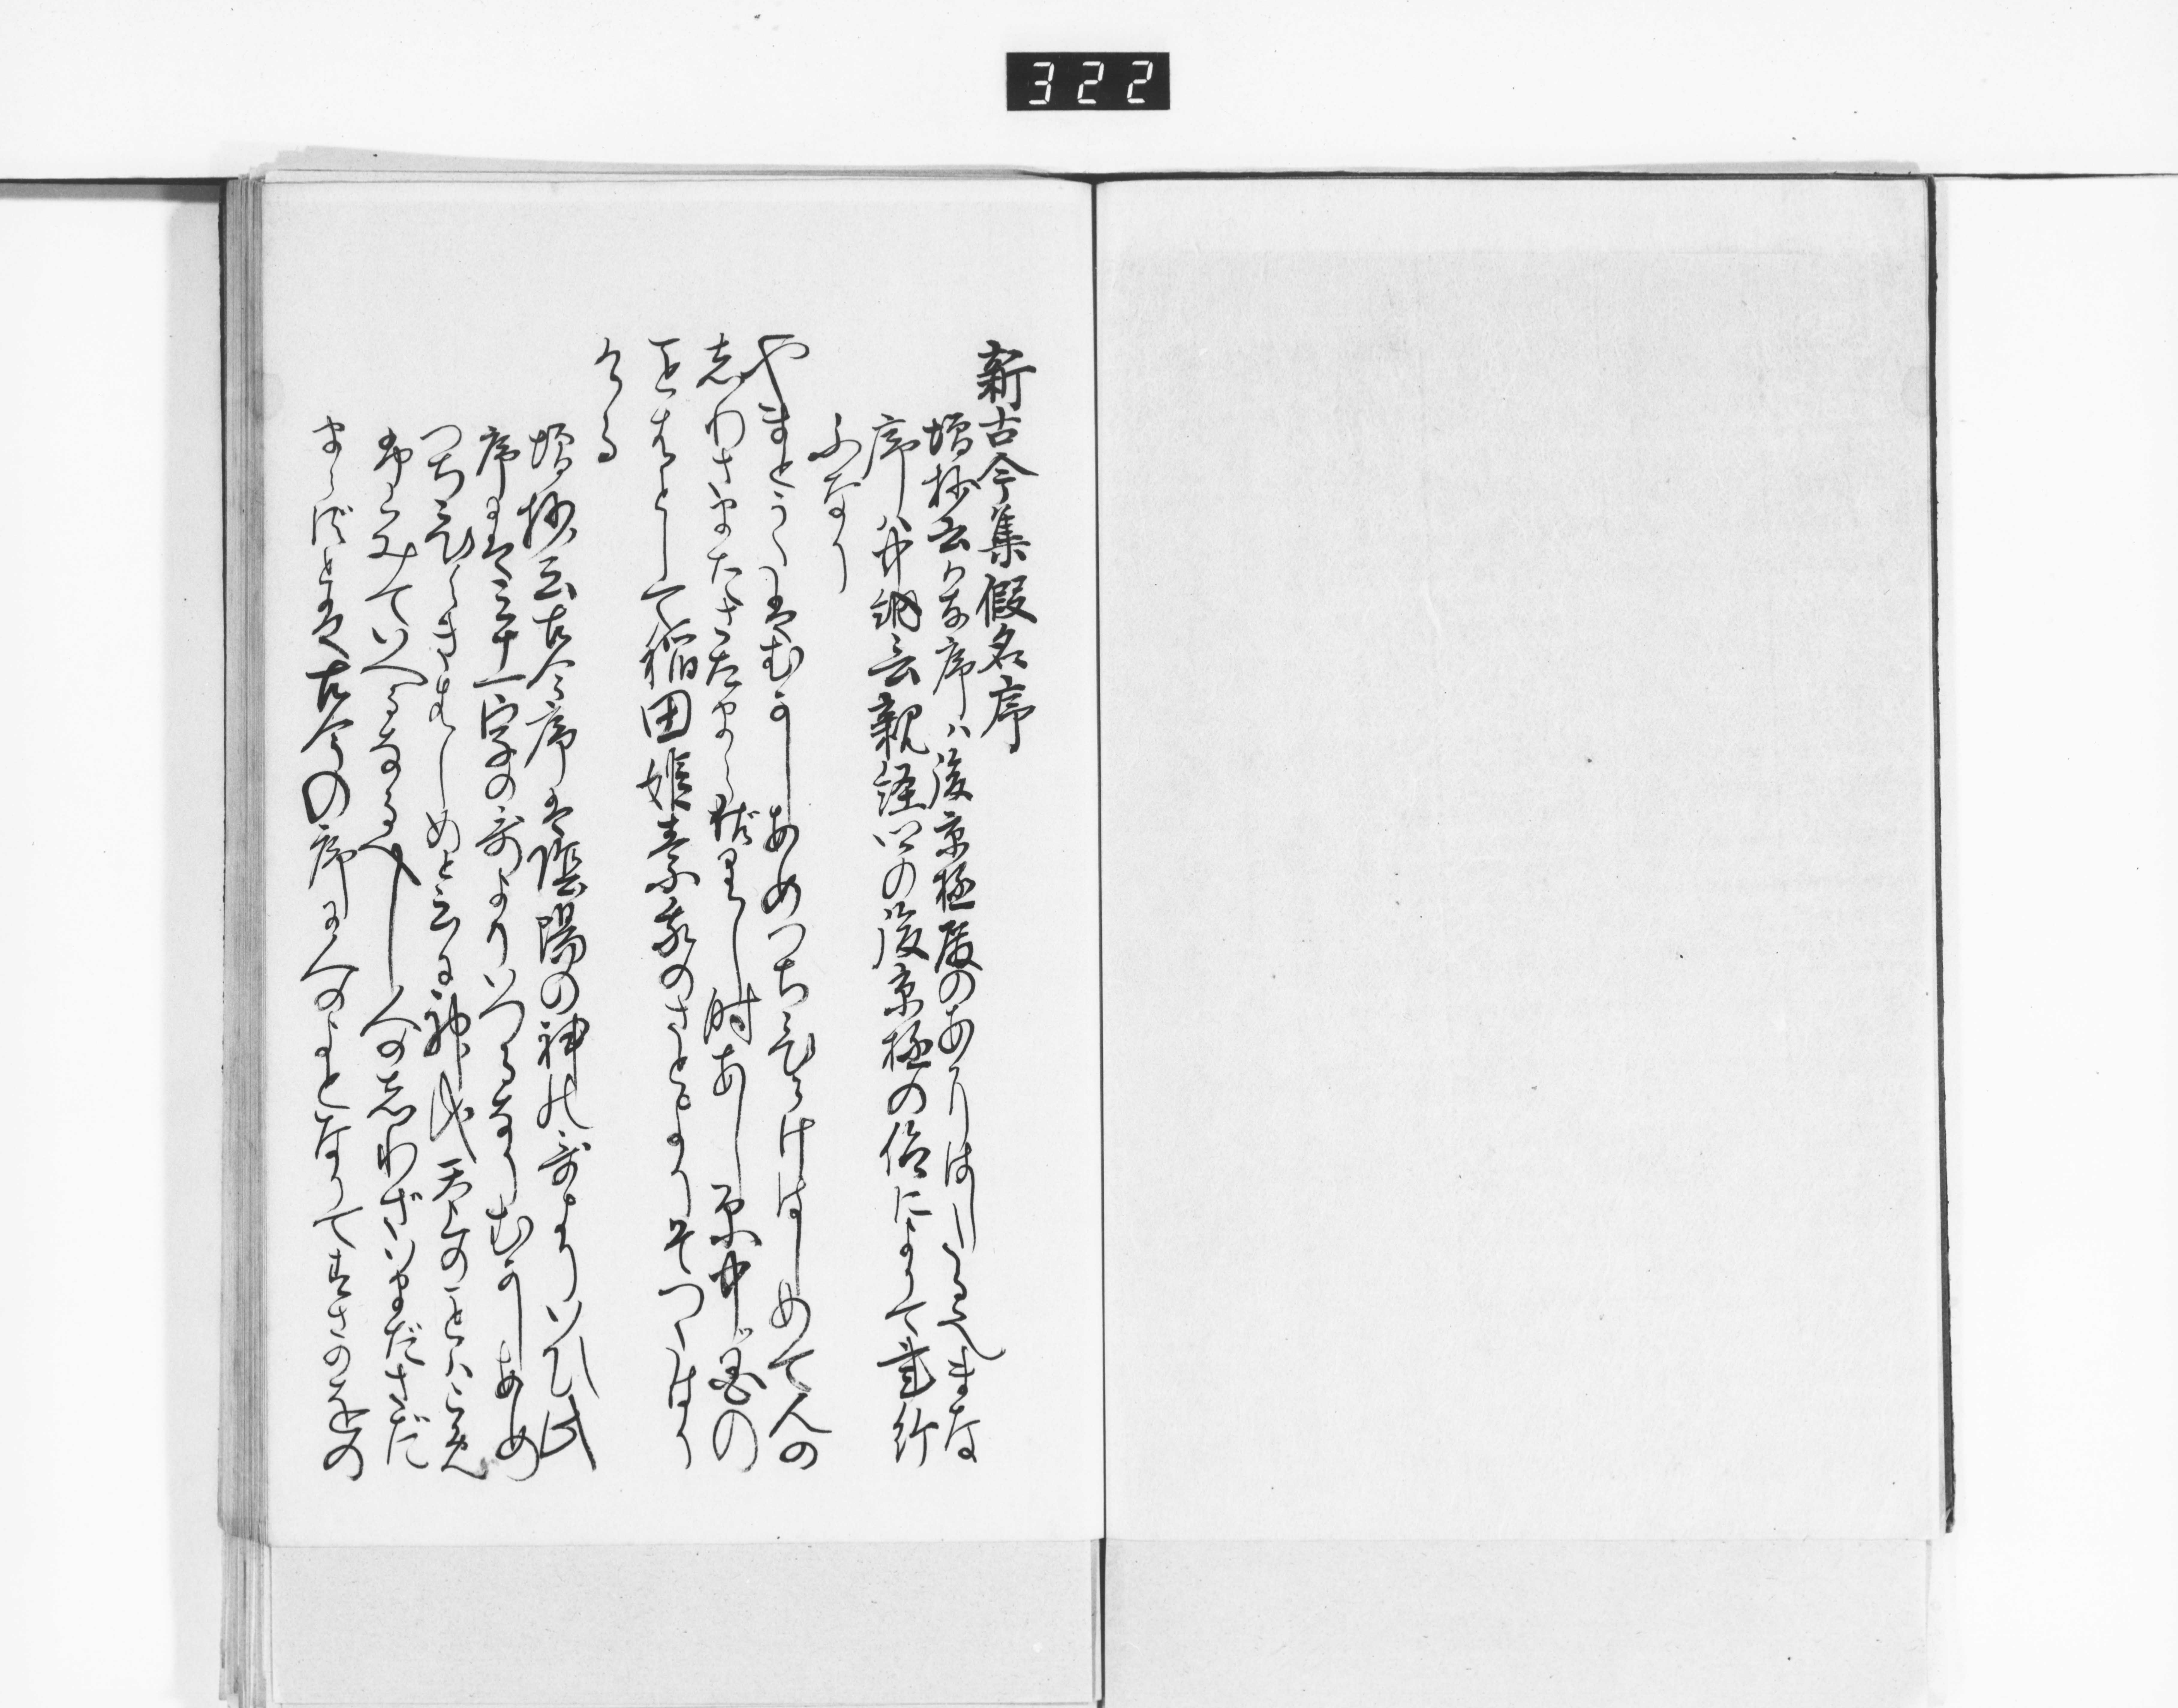 322
新古今集假名序
増抄云かな序ハ後京極殿のあそはししなるへしまな
序ハ中納言親経卿の後京極の仰によりて書給
ふなり
やまとうたはむかしあめつちひらけはしめて人の
しわさいまたさたまらさりし時あし原中国の
ことのはとして稲田姫素鵞のさとよりそつたはり
ける
増抄云古今序は陰陽の神の哥よりいひ此
序には三十一字の哥よりいへるなりむかしあめ
つちひらけはしめと云は神代天上のことハこめ
てみていへるなるへし人のしわざいまださだ
まらずとは古今の序に人のよとなりてすさのをの